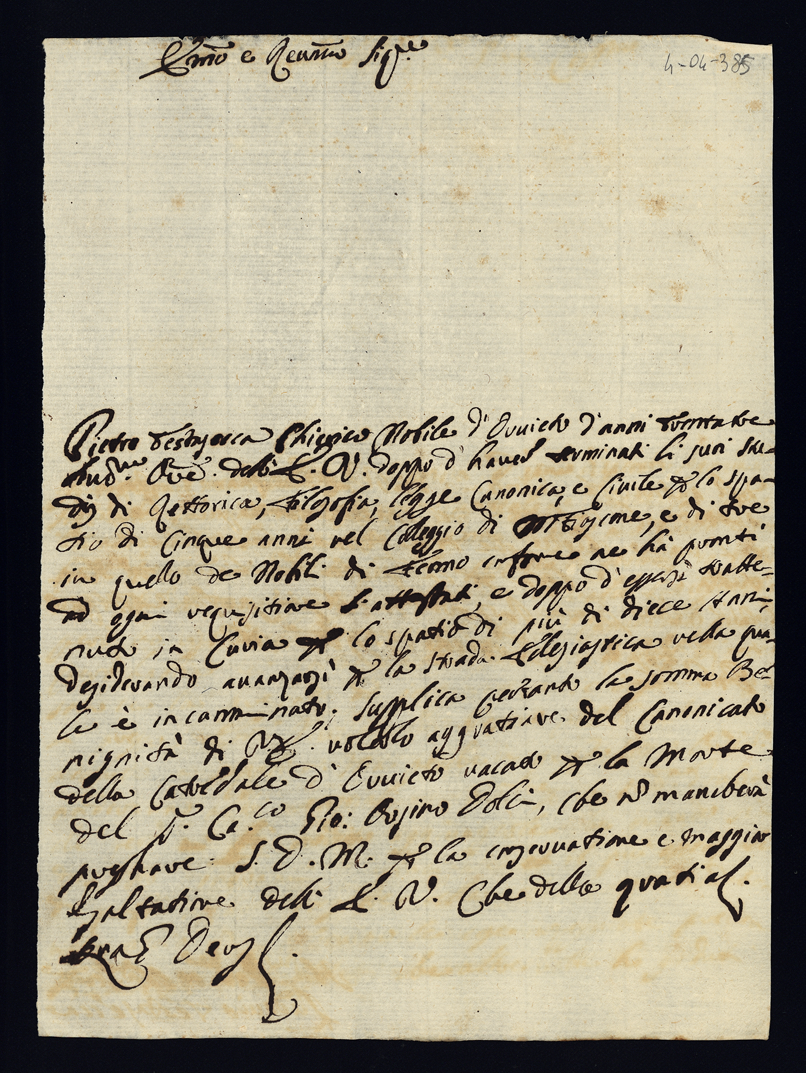 Em̃o e Reum̃o Sig.re
4-04-385
Pietro Chierico Nobile d'Oruieto d'anni trentatre
Ore. dell' E. V. doppo d'hauer terminati li suoi stu-
dij di Rettorica, Filosofia, legge Canonica, e Ciuile p̱ lo spa-
tio di Cinque anni nel Colleggio di e di tre
in quello de Nobili di Fermo conforme ne hà pronti
ad ogni requisitione l'attestati, e doppo d'essersi tratte-
nuto in Curia p̱ lo spatio di più di diece Anni,
desiderando auanzarsi p̱ la strada Eclesiastica nella qua-
le è incamminato; supplica pertanto la somma Be-
nignità di V. E. volerlo aggratiare del Canonicato
della Catedrale d'Oruieto vacato p̱ la Morte
del q. Ca.co Gio: Dolci, che nõ mancherà
pregnare S. D. M. p̱ la conseruatione e maggior
Esaltatione dell' E. V. Che della gratia &.
Quam Deus &.